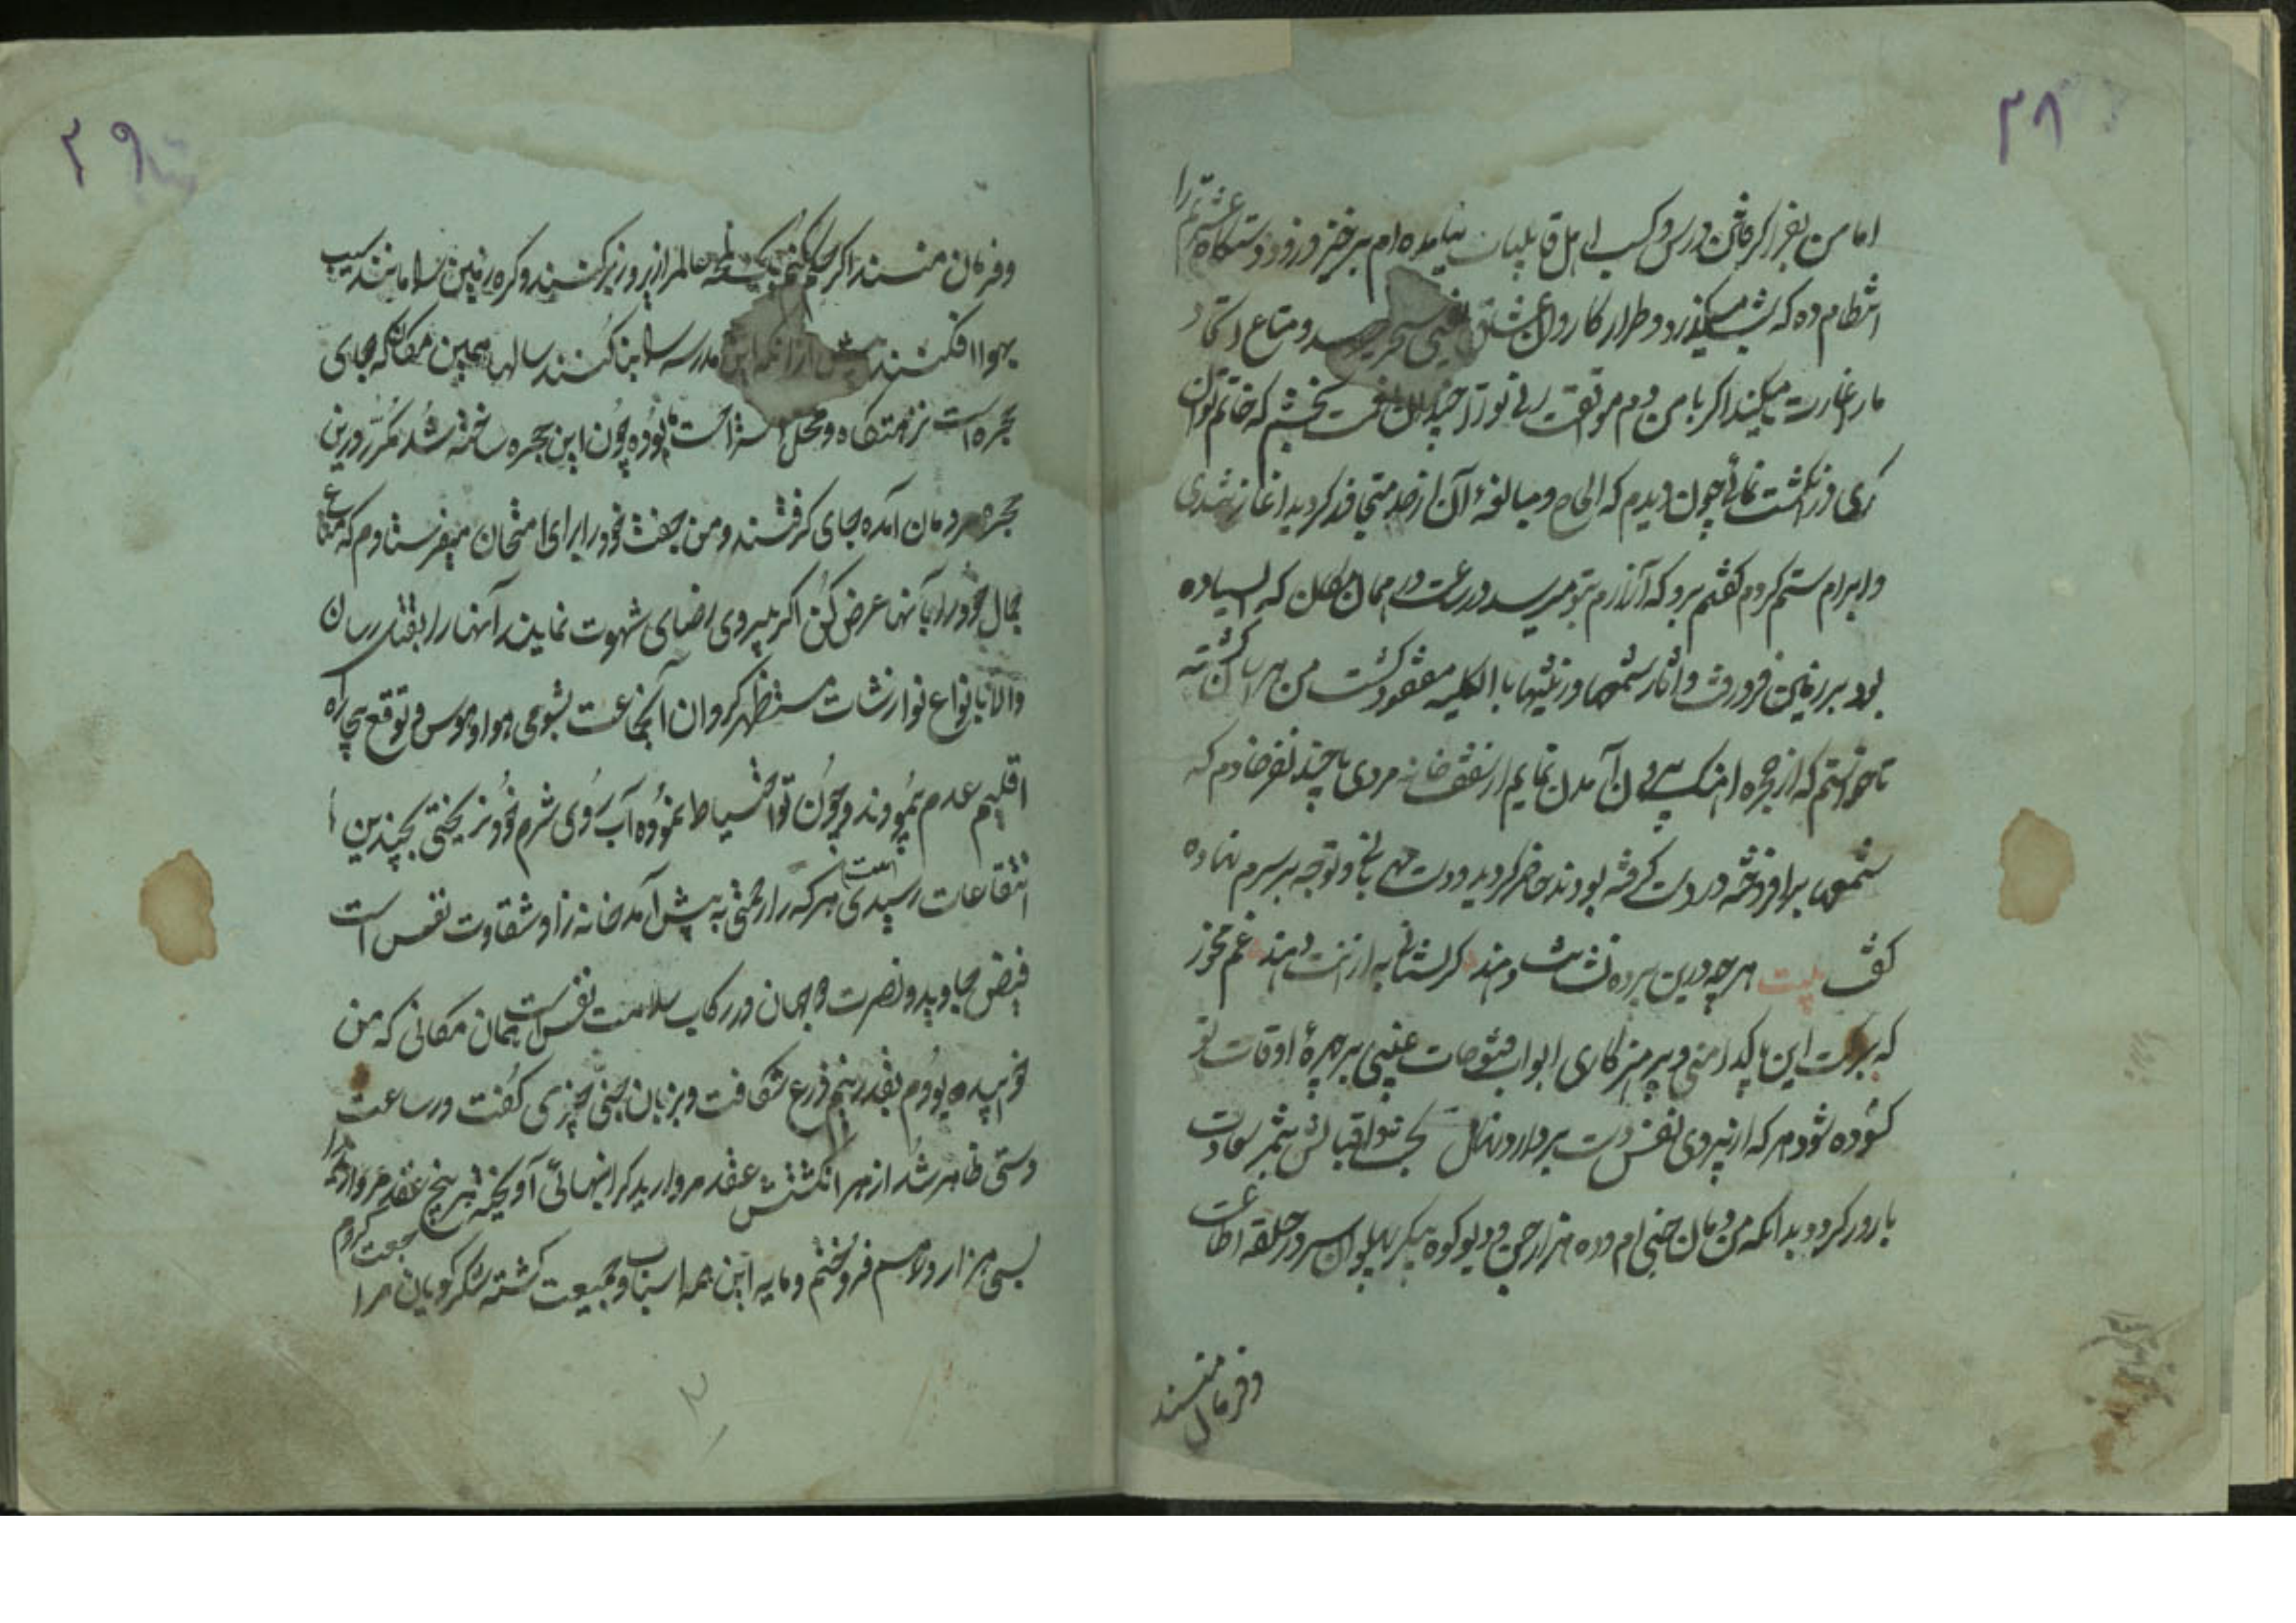 ۳۸
اما من بغیر از گرفتن درس و کسب اهل قابلیات نیامده ام برخیز و زود دستگاه عشرتم را
انتظام ده که شب میگذرد و طرار کاروان سحر میرسد و متاع
ما را غارت میکند اگر با من دم موافقت زنی تو را چندان بخشم که خاتم توان
کری در انگشت نمائی چون دیدم که الحاح و مبالغهٔ آن از حد متجاوز گردید آغاز تندی
و ابرام ستم کردم گفتم برو که آزارم بتو میرسد در همان مکان که ایستاده
بود بر زمین فرو رفت و آثار شمعها و زینتها بالکلیه مفقود گشت من هراسان گشته
تا خواستم که از حجره آهنگ بیرون آمدن نمایم از سقف خانه مردی با چند نفر خادم که
شمعها برافروخته در دست گرفته بودند حاضر گردید و دست بر سرم نهاده
گفت بیت هر چه درین پرده نشانت دهند گر نستانی به از آنت دهند غم مخور
که ببرکت این پاکدامنی و پرهیزکاری ابواب فتوحات غیبی بر چهرهٔ اوقات تو
گشوده شود هر که از پیروی نفس دست بردارد نهال اقبالش بثمر سعادت
بارور گردد بدانکه من جنی ام و ده هزار جن و دیو کوه پیکر پهلوان سر در حلقه اطاعت
و فرمان منند
۳۹
و فرمان منند اگر عالم را زیر و زبر کنند و کره زمین را مانند سیب
بهوا افکنند پیش از آنکه این مدرسه را بنا کنند سالها همین مکان که جای
حجره است نزهتگاه و محل استراحت بوده چون این حجره ساخته شد مکرر درین
حجره مردمان آمده جای گرفتند و من جفت خود را برای امتحان میفرستادم که متاع
جمال خود را بآنها عرض کن اگر پیروی رضای شهوت نمایند آنها را بقتل رسان
والا بانواع نوازشات مستظهر گردان آنجماعت بشومی هوا و هوس و توقع بیجا راه
اقلیم عدم پیمودند و چون تو احتیاط نموده آب روی شرم خود نریختی بچندین
انتفاعات رسیدی هر که را زحمتی به پیش آمد خانه زاد شقاوت نفس است
فیض جاوید و نصرت دو جهان در رکاب سلامت نفس است همان مکانی که من
خوابیده بودم بقدر نیم ذرع شکافت و بزبان جنی چیزی گفت در ساعت
دستی ظاهر شد از هر انگشتش عقد مروارید گرانبهائی آویخته پنج عقد مروارید را
بسی هزار درهم فروختم و مایه این همه اسباب و جمعیت گشته شکرگویان مراجعت کردم